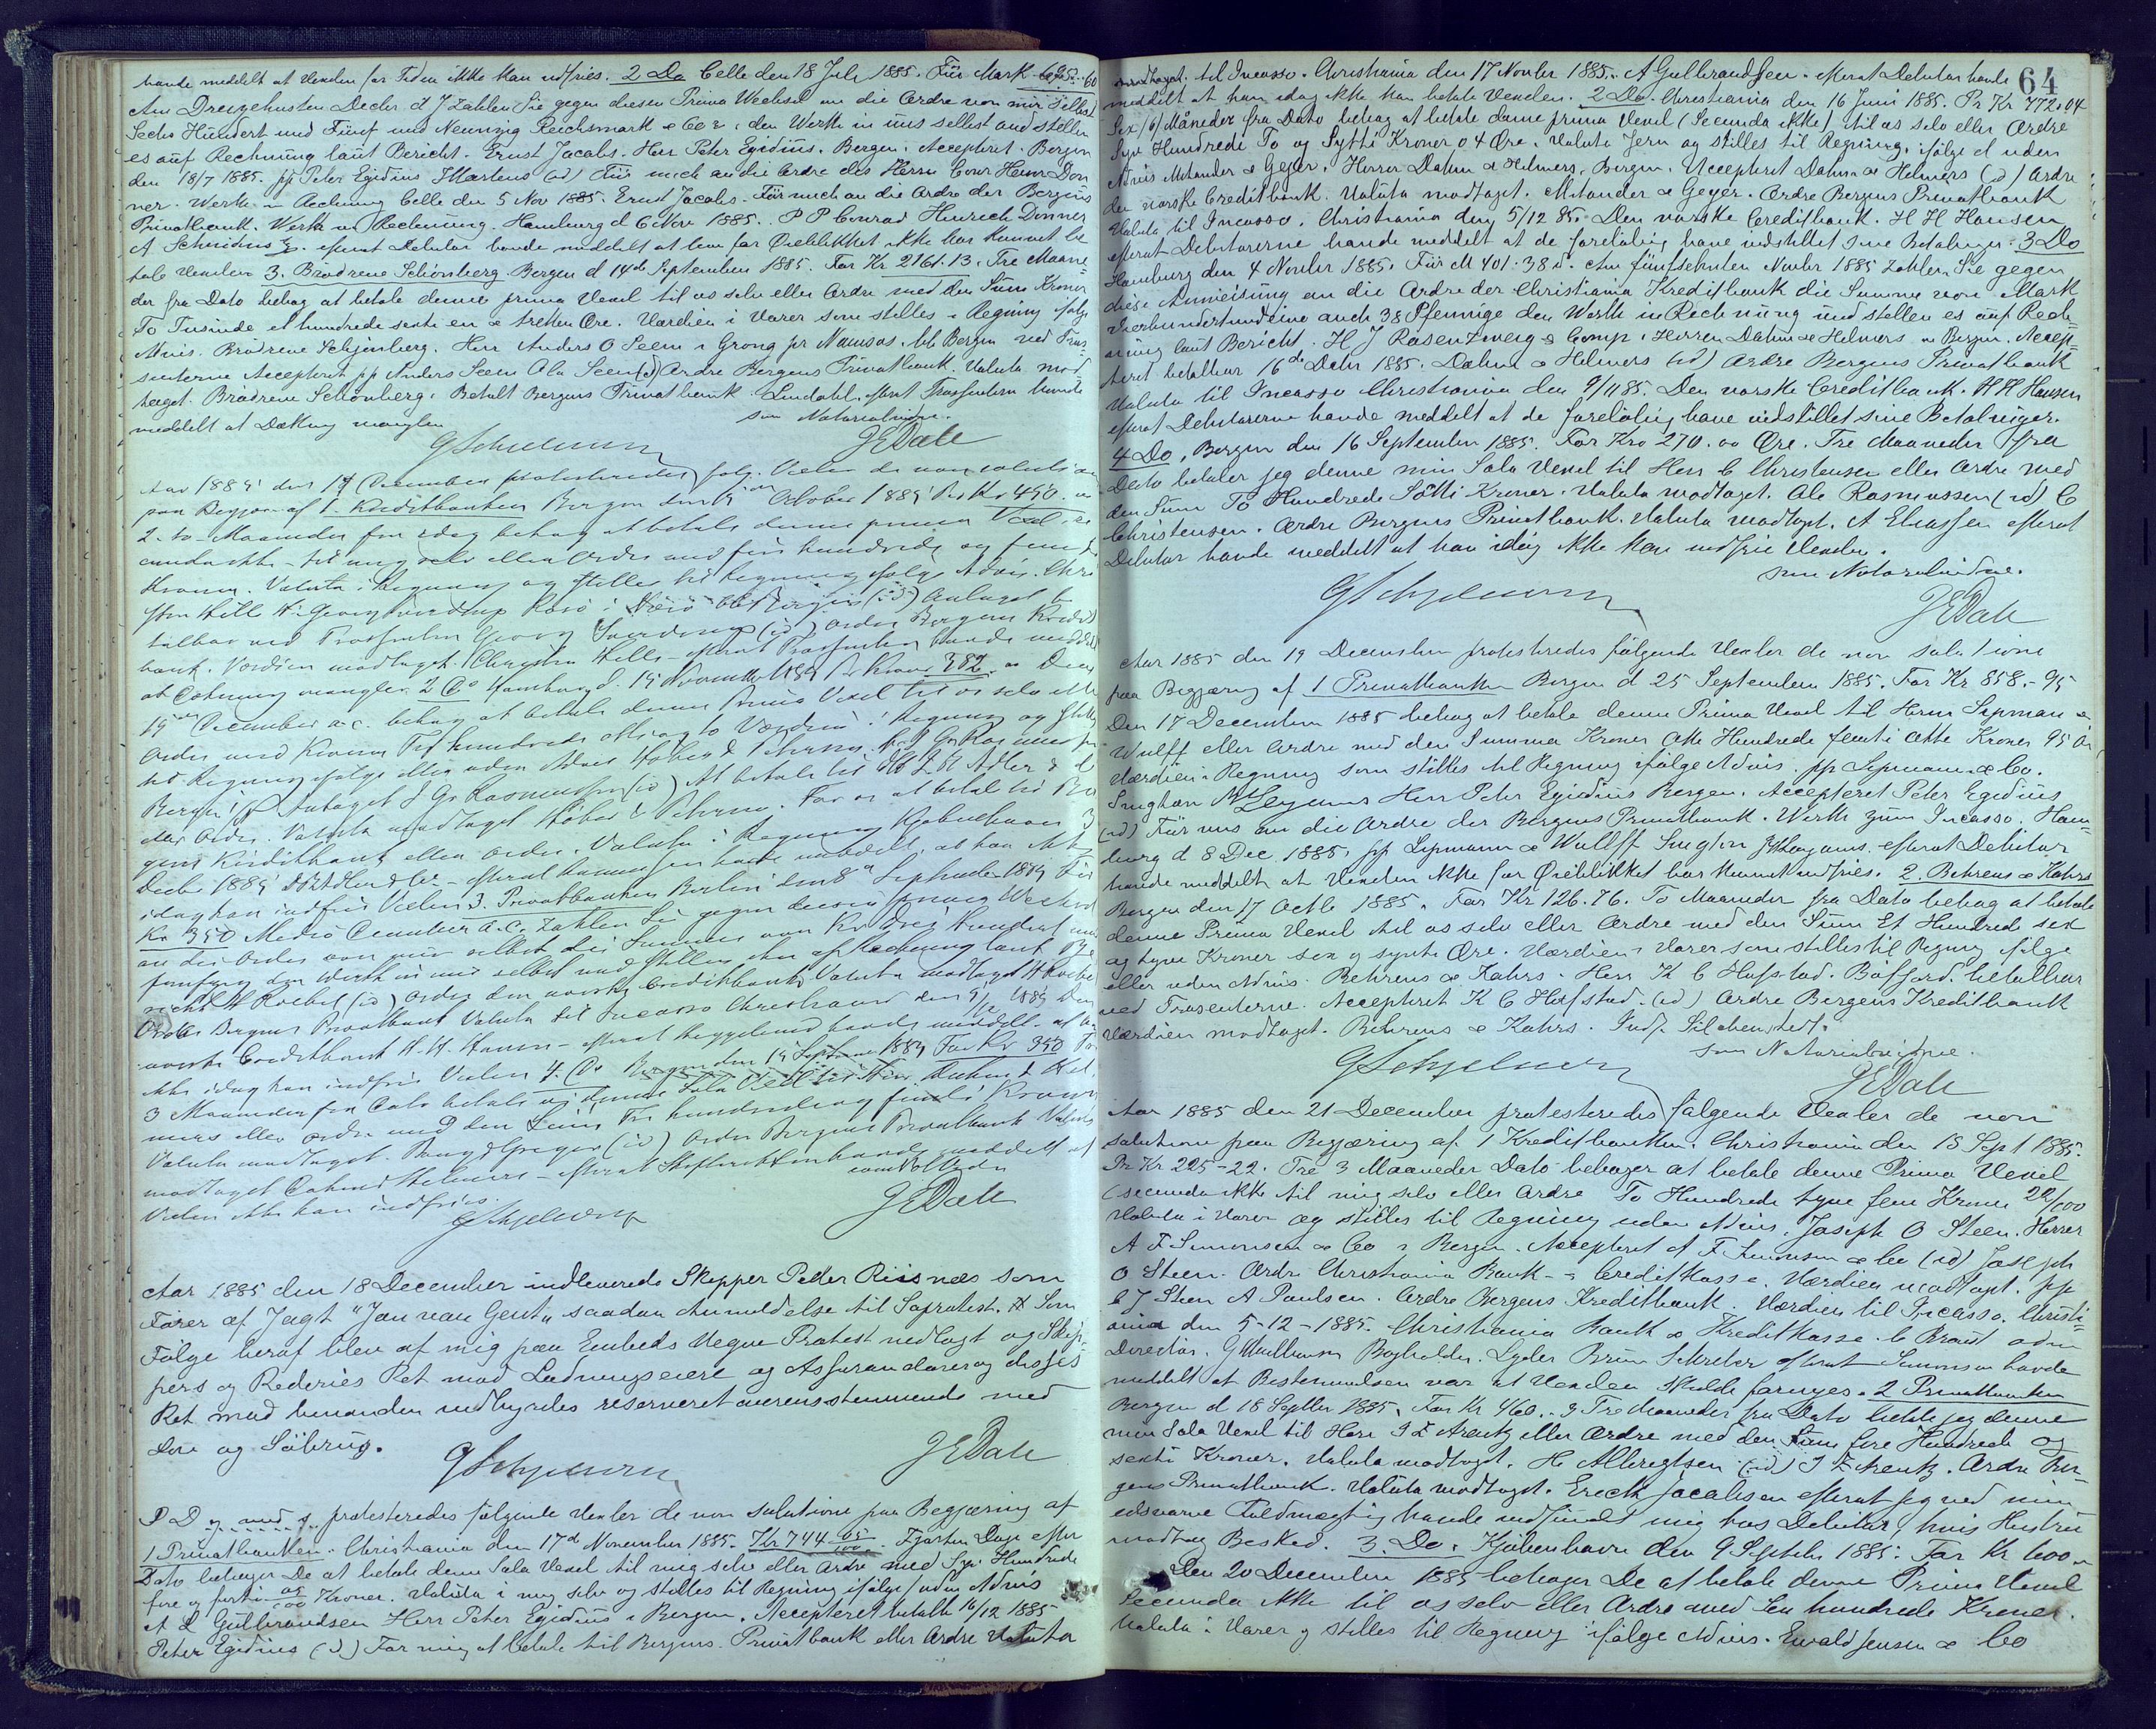 havde meddelt at Vexelen for Tiden ikke kan indfries. 2 Do Celle den 18 Juli 1885. Für Mark 695. 60
Am Dreizehnten Decbr. d J zahlen Sie gegen diesen Prima Wechsel an die Ordre von mir selbst
Sechs Hundert und Fünf und Neunzig Reichsmark & 60 den Werth in uns selbst und stellen
es auf Rechnung laut Bericht. Ernst Jacobs. Herr Peter Egidius. Bergen. Accepteret. Bergen
den 18/7 1885. pp Peter Egidius JMartens (ud) Für mich an die Ordre des Herrn Conr Heinr Don
ner. Werth in Rechnung Celle den 5 Nov 1885. Ernst Jacobs. Für mich an die Ordre der Bergens
Privatbank. Werth in Rechnung. Hamburg d 6 Nov 1885. P P Conrad Hinrich Donner
A Schmidt efterat Debitor havde meddelt at han for Øieblikket ikke har kunnet be
tale Vexelen 3. Brødrene Schönberg Bergen d 14de September 1885. For Kr. 2161.13. Tre Maane
der fra Dato behag at betale denne prima Vexel til os selv eller Ordre med den Sum Kroner
To Tusinde et hundrede sexti en & tretten Øre. Værdien i Varer som stilles i Regning ifølge
Advis. Brödrene Schjönberg. Herr Anders O Seem i Grong pr Namsos. bb Bergen ved Tras
senterne Accepteret pp Anders Seem Ola Seem (ud) Ordre Bergens Privatbank. Valuta mod
taget. Brödrene Schönberg. Betalt Bergens Privatbank Lindahl. efterat Trassenten havde
meddelt at Dækning mangler
som Notarialvidne.
GSchjelderup JEDale
Aar 1885 den 17 December protesteredes følg. Vexler de non solutione
paa Begjær. af 1. Kreditbanken Bergen den 15 October 1885 Pr Kr 450.
2. to Maaneder fra idag behag at betale denne prima Vexel
cunda ikke til mig selv eller Ordre med fire hundrede og femti
Kroner. Valuta i Regning og stilles til Regning ifølge Advis. Chri
sten Hille Hr Georg Sverdrup Rosö i bb Bergen (ud) Antaget be
talbar ved Trassenten Georg Sverdrup (ud) Ordre Bergens Kredit
bank. Værdien modtaget. Christen Hille efterat Trassenten havde meddelt
at Dækning mangler. 2 Do Hamburg d. 15 November 1885 Pr Kroner 582. Den
15 December a.c. behag at betale denne Prima Vexel til os selv eller
Ordre med Kroner Fem hundrede otti og to Værdien i Regning og stilles
til Regning ifølge eller uden Advis
Bergen. Antaget J Gr Rasmussen (ud) At betale til D H Adler & Co
eller Ordre. Valuta modtaget For os at betale til Ber
gens Kreditbank eller Ordre. Valuta i Regning Kjøbenhavn 3
Decbr 1885 D H Adler & Co efterat havde meddelt, at han ikke
idag kan indfrie Vexelen 3. Privatbanken Berlin den 8 September 1885 Für
Kr 350 Medio December a.c. zahlen Sie gegen diesen prima Wechsel
an die Ordre von mir selbst die Summe von Kr Drei Hundert und
fünfzig den Werth in mir selbst und stellen ihn auf Rechnung laut Be
richt H Roebel (ud) Ordre den norske Creditbank Valuta modtaget H Roebel
Ordre Bergens Privatbank Valuta til Incasso Christiania den 9/12 1885 Den
norske Creditbank H. H. Hansen efterat havde meddelt at
ikke idag kan indfrie Vexelen 4. Do Bergen den 15 September 1885 For Kr 350 For
3 Maaneder fra Dato betale vi denne Sola Vexel til Herr Dahm & Hel
mers eller Ordre med den Sum Tre hundrede og femti Kroner
Valuta modtaget. (ud) Ordre Bergens Privatbank Valuta
modtaget Dahm & Helmers efterat havde meddelt at
Vexelen ikke kan indfries.
som Not Vidne
GSchjelderup JEDale
Aar 1885 den 18 December indleverede Skipper Peder Riisnæs som
Fører af Jagt "Jan van Gent" saadan Anmeldelse til Søprotest. # Som
Følge heraf blev af mig paa Embeds Vegne Protest nedlagt og Skip-
pers og Rederies Ret mod Ladningseiere og Assurandører og disses
Ret mod hinanden indbyrdes reserveret overensstemmende med
Lov og Søbrug.
GSchjelderup JEDale
D D og med protesteredes følgende Vexler de non solutione paa Begjæring af
1 Privatbanken. Christiania den 17de November 1885. Kr 744 05/100. Fjorten Dage efter
Dato behager De at betale denne Sola Vexel til mig selv eller Ordre med Syv Hundrede
fire og førti 05/100 Kroner. Valuta i mig selv og stilles til Regning ifølge/uden Advis
A L Gulbrandsen Herr Peter Egidius i Bergen. Accepteret betalb 16/12 1885
Peter Egidius (ud) For mig at betale til Bergens Privatbank eller Ordre Valuta
64
modtaget til Incasso. Christiania den 17 Novbr 1885. A Gulbrandsen. efterat Debitor havde
meddelt at han idag ikke kan betale Vexelen. 2 Do. Christiania den 16 Juni 1885. Pr Kr 772.04
Sex (6) Måneder fra Dato behag at betale denne prima Vexel (Secunda ikke) til os selv eller Ordre
Syv Hundrede To og Sytti Kroner 04 Øre. Valuta Jern og stilles til Regning, ifølge el uden
Advis Melander & Geger. Herrer Dahm & Helmers, Bergen. Accepteret Dahm & Helmers (ud) Ordre
den norske Creditbank. Valuta modtaget. Melander & Geger. Ordre Bergens Privatbank
Valuta til Incasso. Christiania den 5/12 85. Den norske Creditbank. H H Hansen
efterat Debitorerne havde meddelt at de foreløbig have indstillet sine Betalinger. 3 Do
Hamburg den 4 Novbr 1885. Für M 401.38 d. Am fünfzehnten Novbr 1885 zahlen Sie gegen
diese Anweisung an die Ordre der Christiania Kreditbank die Summe von Mark
Vierhundertundeine auch 38 Pfennige den Werth in Rechnung und stellen es auf Rech-
nung laut Bericht. H J Rosenzweig & Comp. Herren Dahm & Helmers in Bergen. Accep-
teret betalbar 16de Debr 1885. Dahm & Helmers (ud) Ordre Bergens Privatbank
Valuta til Incasso Christiania den 9/11 85. Den norske Creditbank. H H Hansen
efterat Debitorerne havde meddelt at de foreløbig have indstillet sine Betalninger.
4 Do. Bergen den 16 September 1885. For Kro 270.00 Øre. Tre Maaneder fra
Dato betaler jeg denne min Sola Vexel til Herr C Christensen eller Ordre med
den Sum To Hundrede Sötti Kroner. Valuta modtaget. Ole Rasmussen (ud) C
Christensen. Ordre Bergens Privatbank. Valuta modtaget. A Eliassen efterat
Debitor havde meddelt at han idag ikke kan indfrie Vexelen.
som Notarialvidne.
GSchjelderup JEDale
Aar 1885 den 19 December protesteredes følgende Vexler de non solutione
paa Begjæring af 1 Privatbanken Bergen d 25 September 1885. For Kr 858.-95
Den 17 December 1885 behag at betale denne Prima Vexel til Herrn Lipman &
Wulff eller Ordre med den Summa Kroner Otte Hundrede femti Otte Kroner 95 Ör
Værdien i Regning som stilles til Regning ifølge Advis. pp Lipmann & Co.
Herr Peter Egidius Bergen. Accepteret Peter Egidius
(ud) Für uns an die Ordre der Bergens Privatbank. Werth zum Incasso. Ham-
burg d 8 Dec 1885. pp Lipmann & Wulff efterat Debitor
havde meddelt at Vexelen ikke for Øieblikket har kunnet indfries. 2. Behrens & Kahrs
Bergen den 17 Octb 1885. For Kr 126.76. To Maaneder fra Dato behag at betale
denne Prima Vexel til os selv eller Ordre med den Sum Et Hundrede sex
og tyve Kroner sex og sytti Øre. Værdien i Varer som stilles til Regning ifølge
eller uden Advis. Behrens & Kahrs. Herr K C Hofstad. Bøfjord. betalbar
ved Trassenterne. Accepteret K C Hofstad. (ud) Ordre Bergens Kreditbank
Værdien modtaget. Behrens & Kahrs. Indf.
som Notarialvidne.
GSchjelderup JEDale
Aar 1885 den 21 December protesteredes følgende Vexler de non
solutione paa Begjæring af 1 Kreditbanken. Christiania den 15 Sept 1885.
Pr Kr 225-22. Tre 3 Maaneder Dato behager at betale denne Prima Vexel
(secunda ikke til mig selv eller Ordre To Hundrede tyve fem Kroner 22/100
Valuta i Varer og stilles til Regning uden Advis. Joseph O Steen. Herrer
A F Simonsen & Co i Bergen. Accepteret A F Simonsen & Co (ud) Joseph
O Steen. Ordre Christiania Bank- & Creditkasse. Værdien modtaget. pp
C J Steen A Paulsen. Ordre Bergens Kreditbank. Værdien til Incasso. Christi-
ania den 5-12-1885. Christiania Bank & Kreditkasse. C Brand adm
Director. Bogholder. Lyder Brun Sekretær efterat Simonsen havde
meddelt at Bestemmelsen var at Vexelen skulde fornyes. 2 Privatbanken
Bergen d 18 Septbr 1885. For Kr 460.- 3 Tre Maaneder fra Dato betale jeg denne
min Sola Vexel til Herr I Z Arentz eller Ordre med den Sum fire Hundrede og
sexti Kroner. Valuta modtaget. H. Albregtsen (ud) I Z Arentz. Ordre Ber-
gens Privatbank. Valuta modtaget. Erick Jacobsen efterat jeg ved min
edsvorne Fuldmægtig havde indfundet mig hos Debitor, hvis Hustru
modtog Besked. 3. Do. Kjöbenhavn den 9 Septbr 1885. For Kr 600.
Den 20 December 1885 behager De at betale denne Prima Vexel
Secunda ikke til os selv eller Ordre med Sex hundrede Kroner.
Valuta i Varer og stilles til Regning ifølge Advis. Ewald Jensen & Co